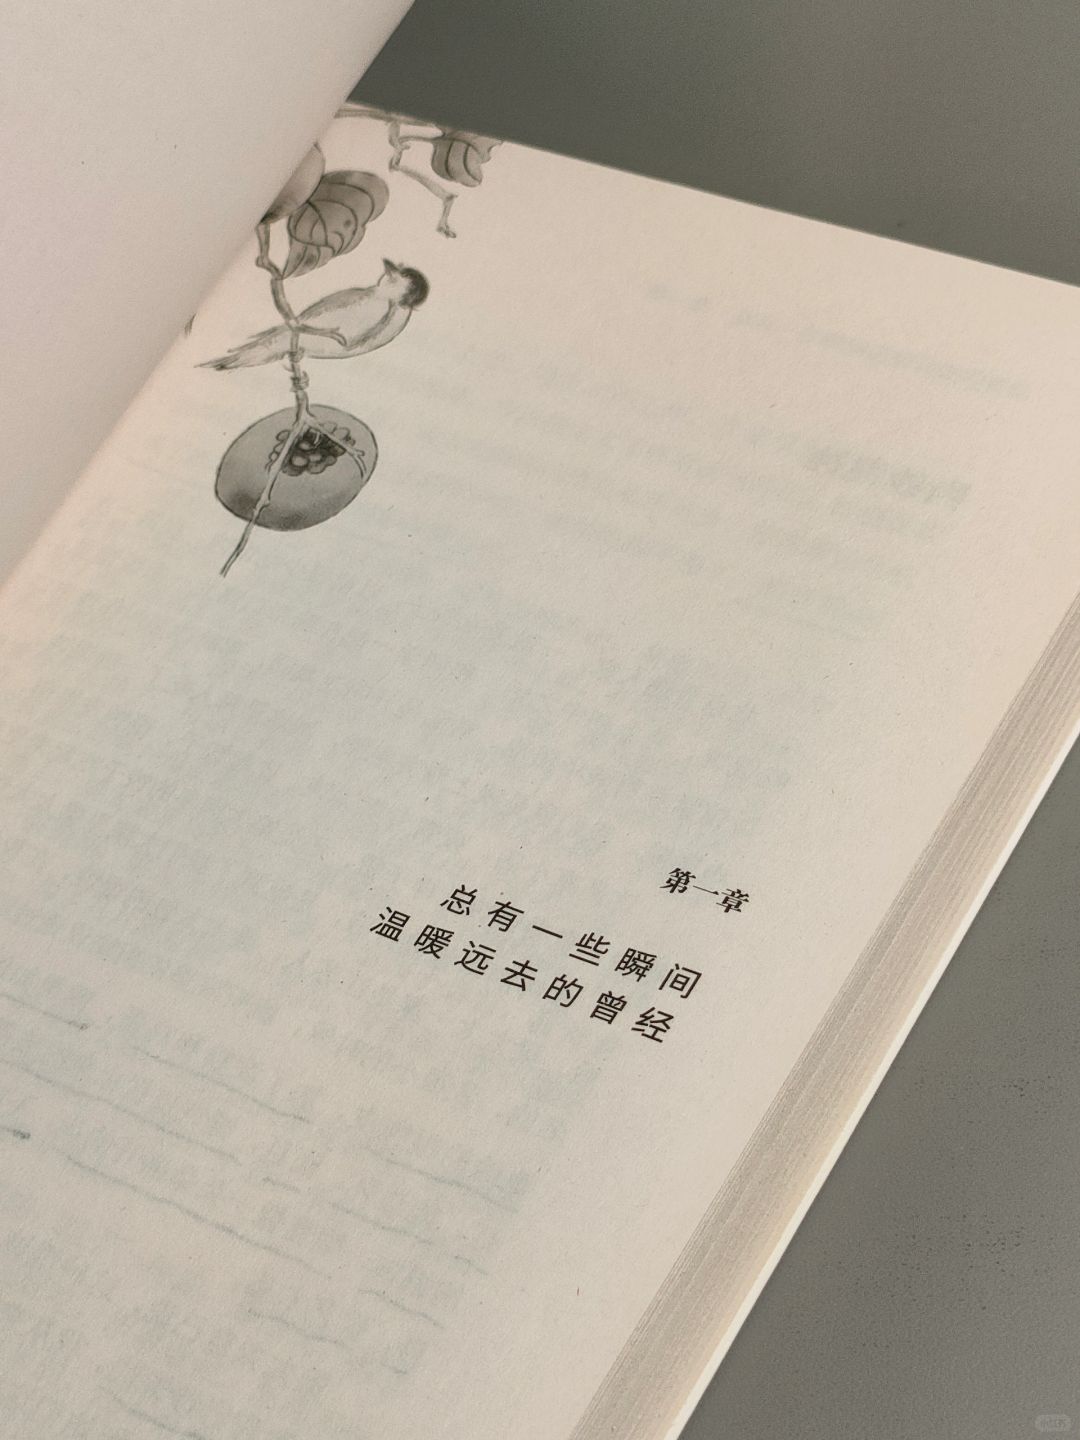 第一章
总有一些瞬间
温暖远去的曾经